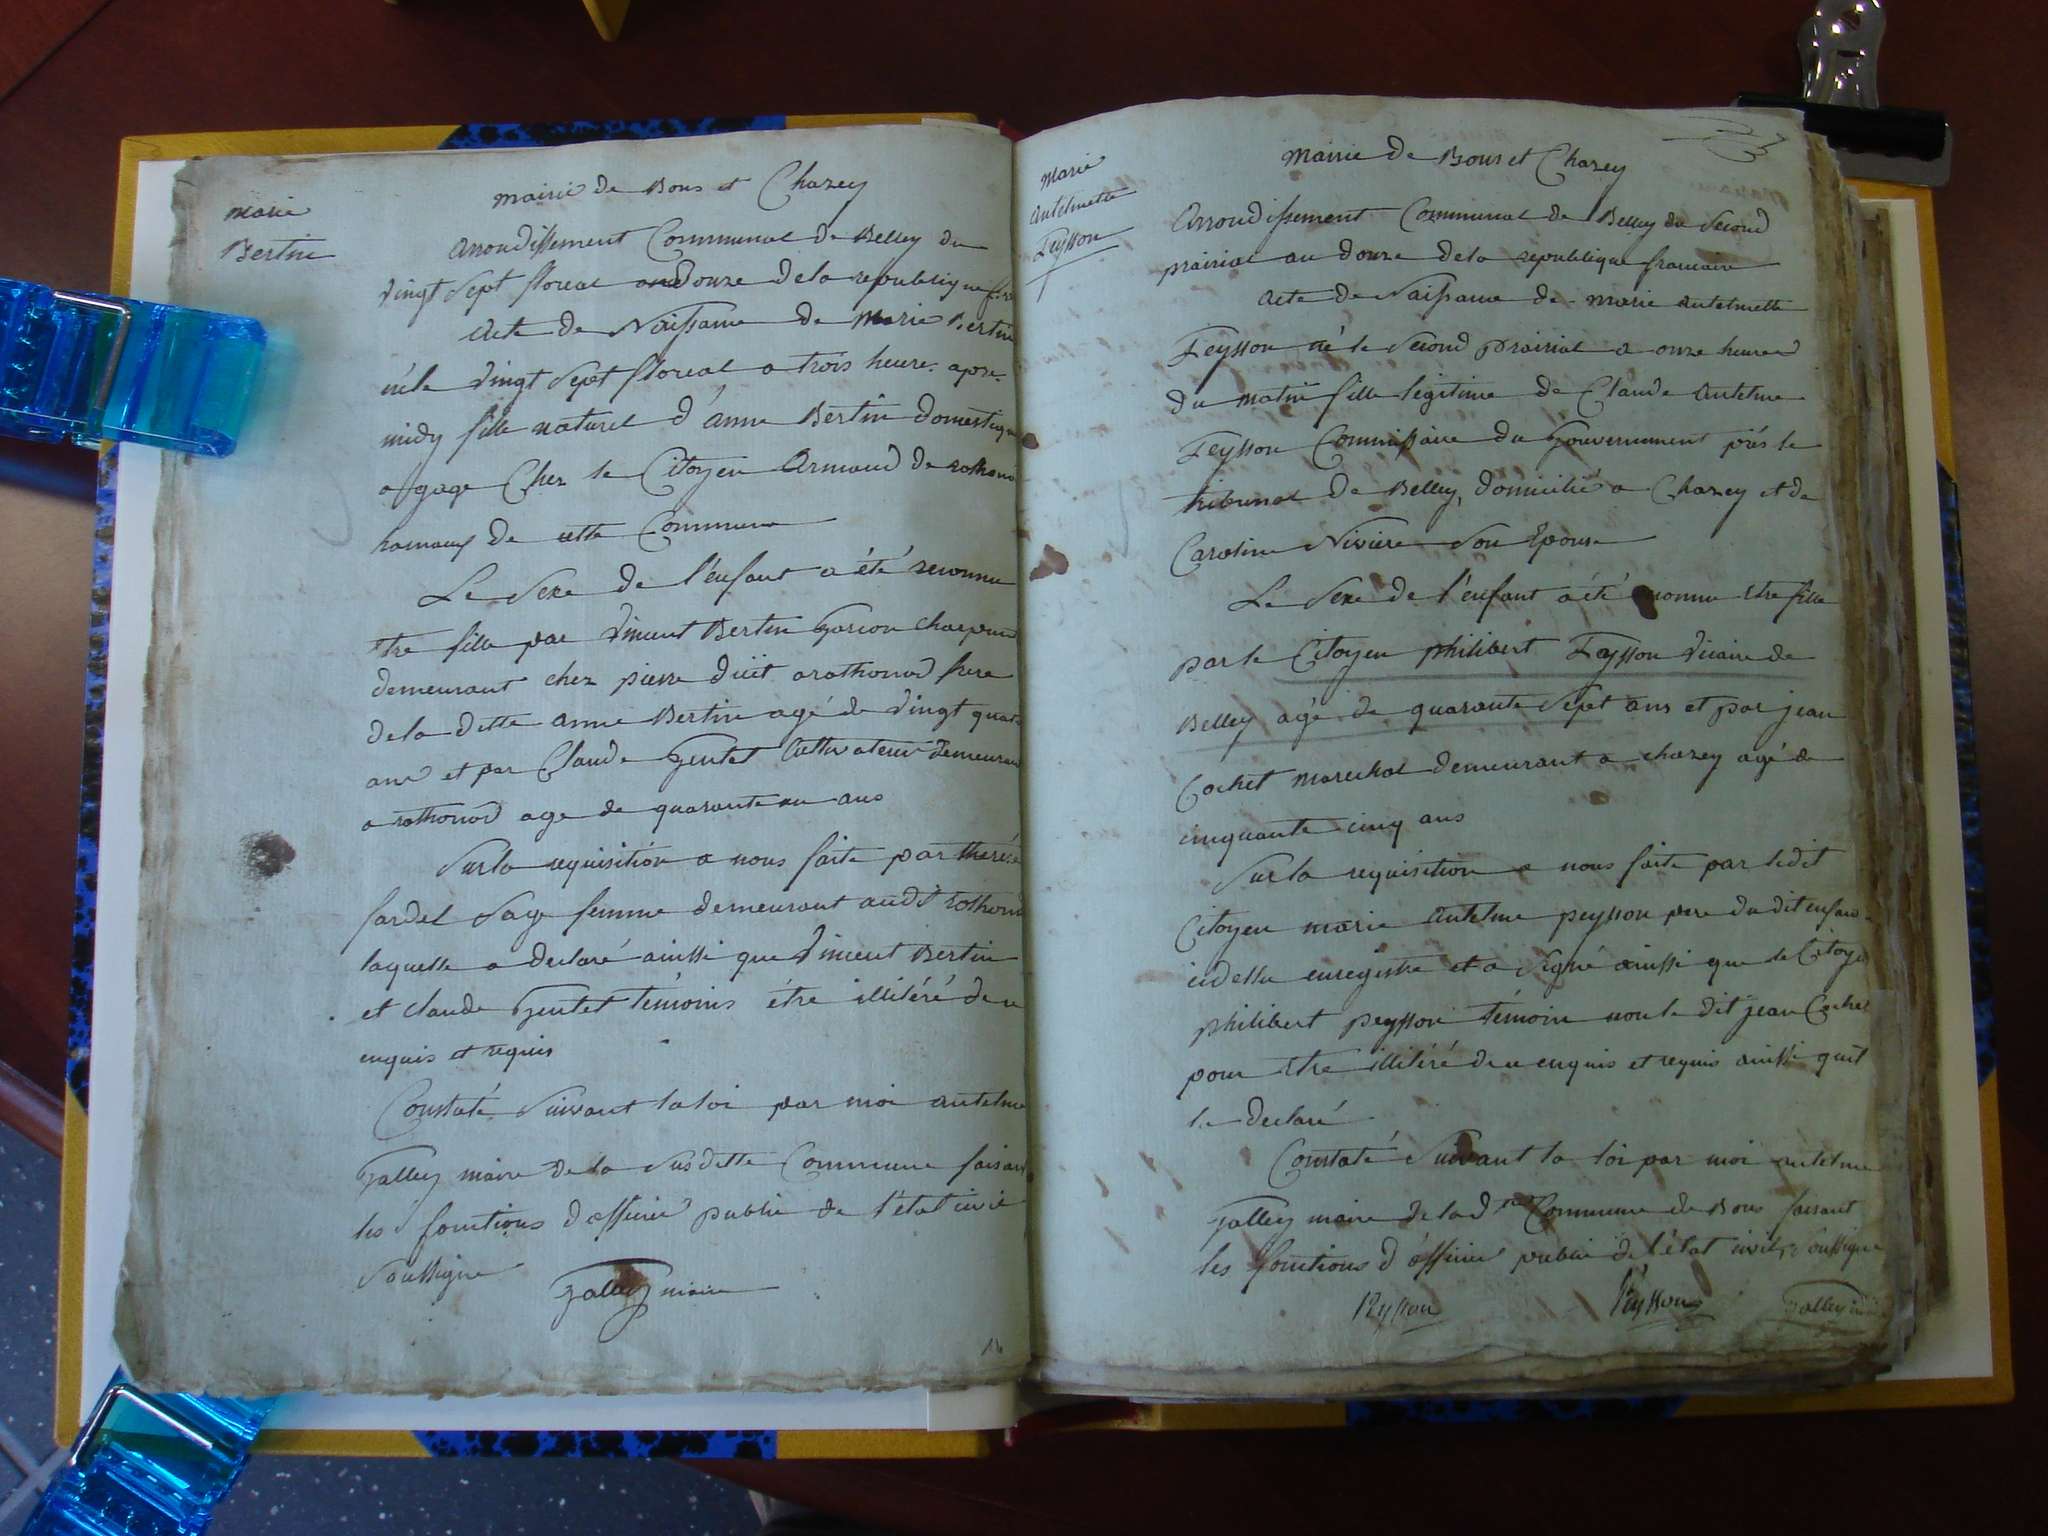 Marie
Bertin
Mairie de Bons et Chazey
Arrondissement Communal de Belley du
vingt sept floreal an douze de la republique
Acte de Naissance de Marie Bertin
née le vingt sept floreal a trois heure apre
midy fille naturel d'anne Bertin domestique
a gage Chez le Citoyen Armand de rothono
hamauf de cette Commune
Le Sexe de l'enfant a été reconnu
etre fille par vincent Bertin garcon charpen
demeurant chez pierre duit a rothonod frere
de la ditte anne Bertin agé de vingt quatr
ans et par Claude Gentet Cultivateur demeuran
a rothonod age de quarante un ans
Sur la requisition a nous faite par therése
fardel Sage femme demeurant audit rothonod
laquelle a declaré ainssi que vincent Bertin
et claude Gentet temoins étre illitéré de ce
enquis et requis
Constaté Suivant la loi par moi antelme
Galley maire de la Susditte Commune faisant
les fonctions d'officier public de l'état civil
Soussigne
Galley maire
14
Marie
Antelmette
Feysson
Mairie de Bons et Chazey
Arrondissement Communal de Belley du Second
prairial an douze de la republique francaise
Acte de Naissance de Marie Antelmette
Feysson né le Second prairial a onze heures
du matin fille légitime de Claude Antelme
Feysson Commissaire du Gouvernement prés le
tribunal de Belley, domicilié a Chazey et de
Caroline Nivière Son Epouse
Le Sexe de l'énfant a été reconnu Etre fille
par le Citoyen philibert Feysson vicaire de
Belley agé de quarante Sept ans et par jean
Cochet marechal demeurant a chazey agé de
cinquante cinq ans
Sur la requisition a nous faite par ledit
Citoyen marie Antelme peysson pere du dit enfant
cidessu enregistré et a Signé ainssi que le Citoye
philibert peysson témoin non le dit jean Cochet
pour Etre illitéré de ce enquis et requis ainssi quil
le declaré
Constaté Suivant la loi par moi antelme
Galley maire de la dte Commune de Bons faisant
les fonctions d'officier public de l'état civil, Soussigne
Peysson Peysson Galley maire